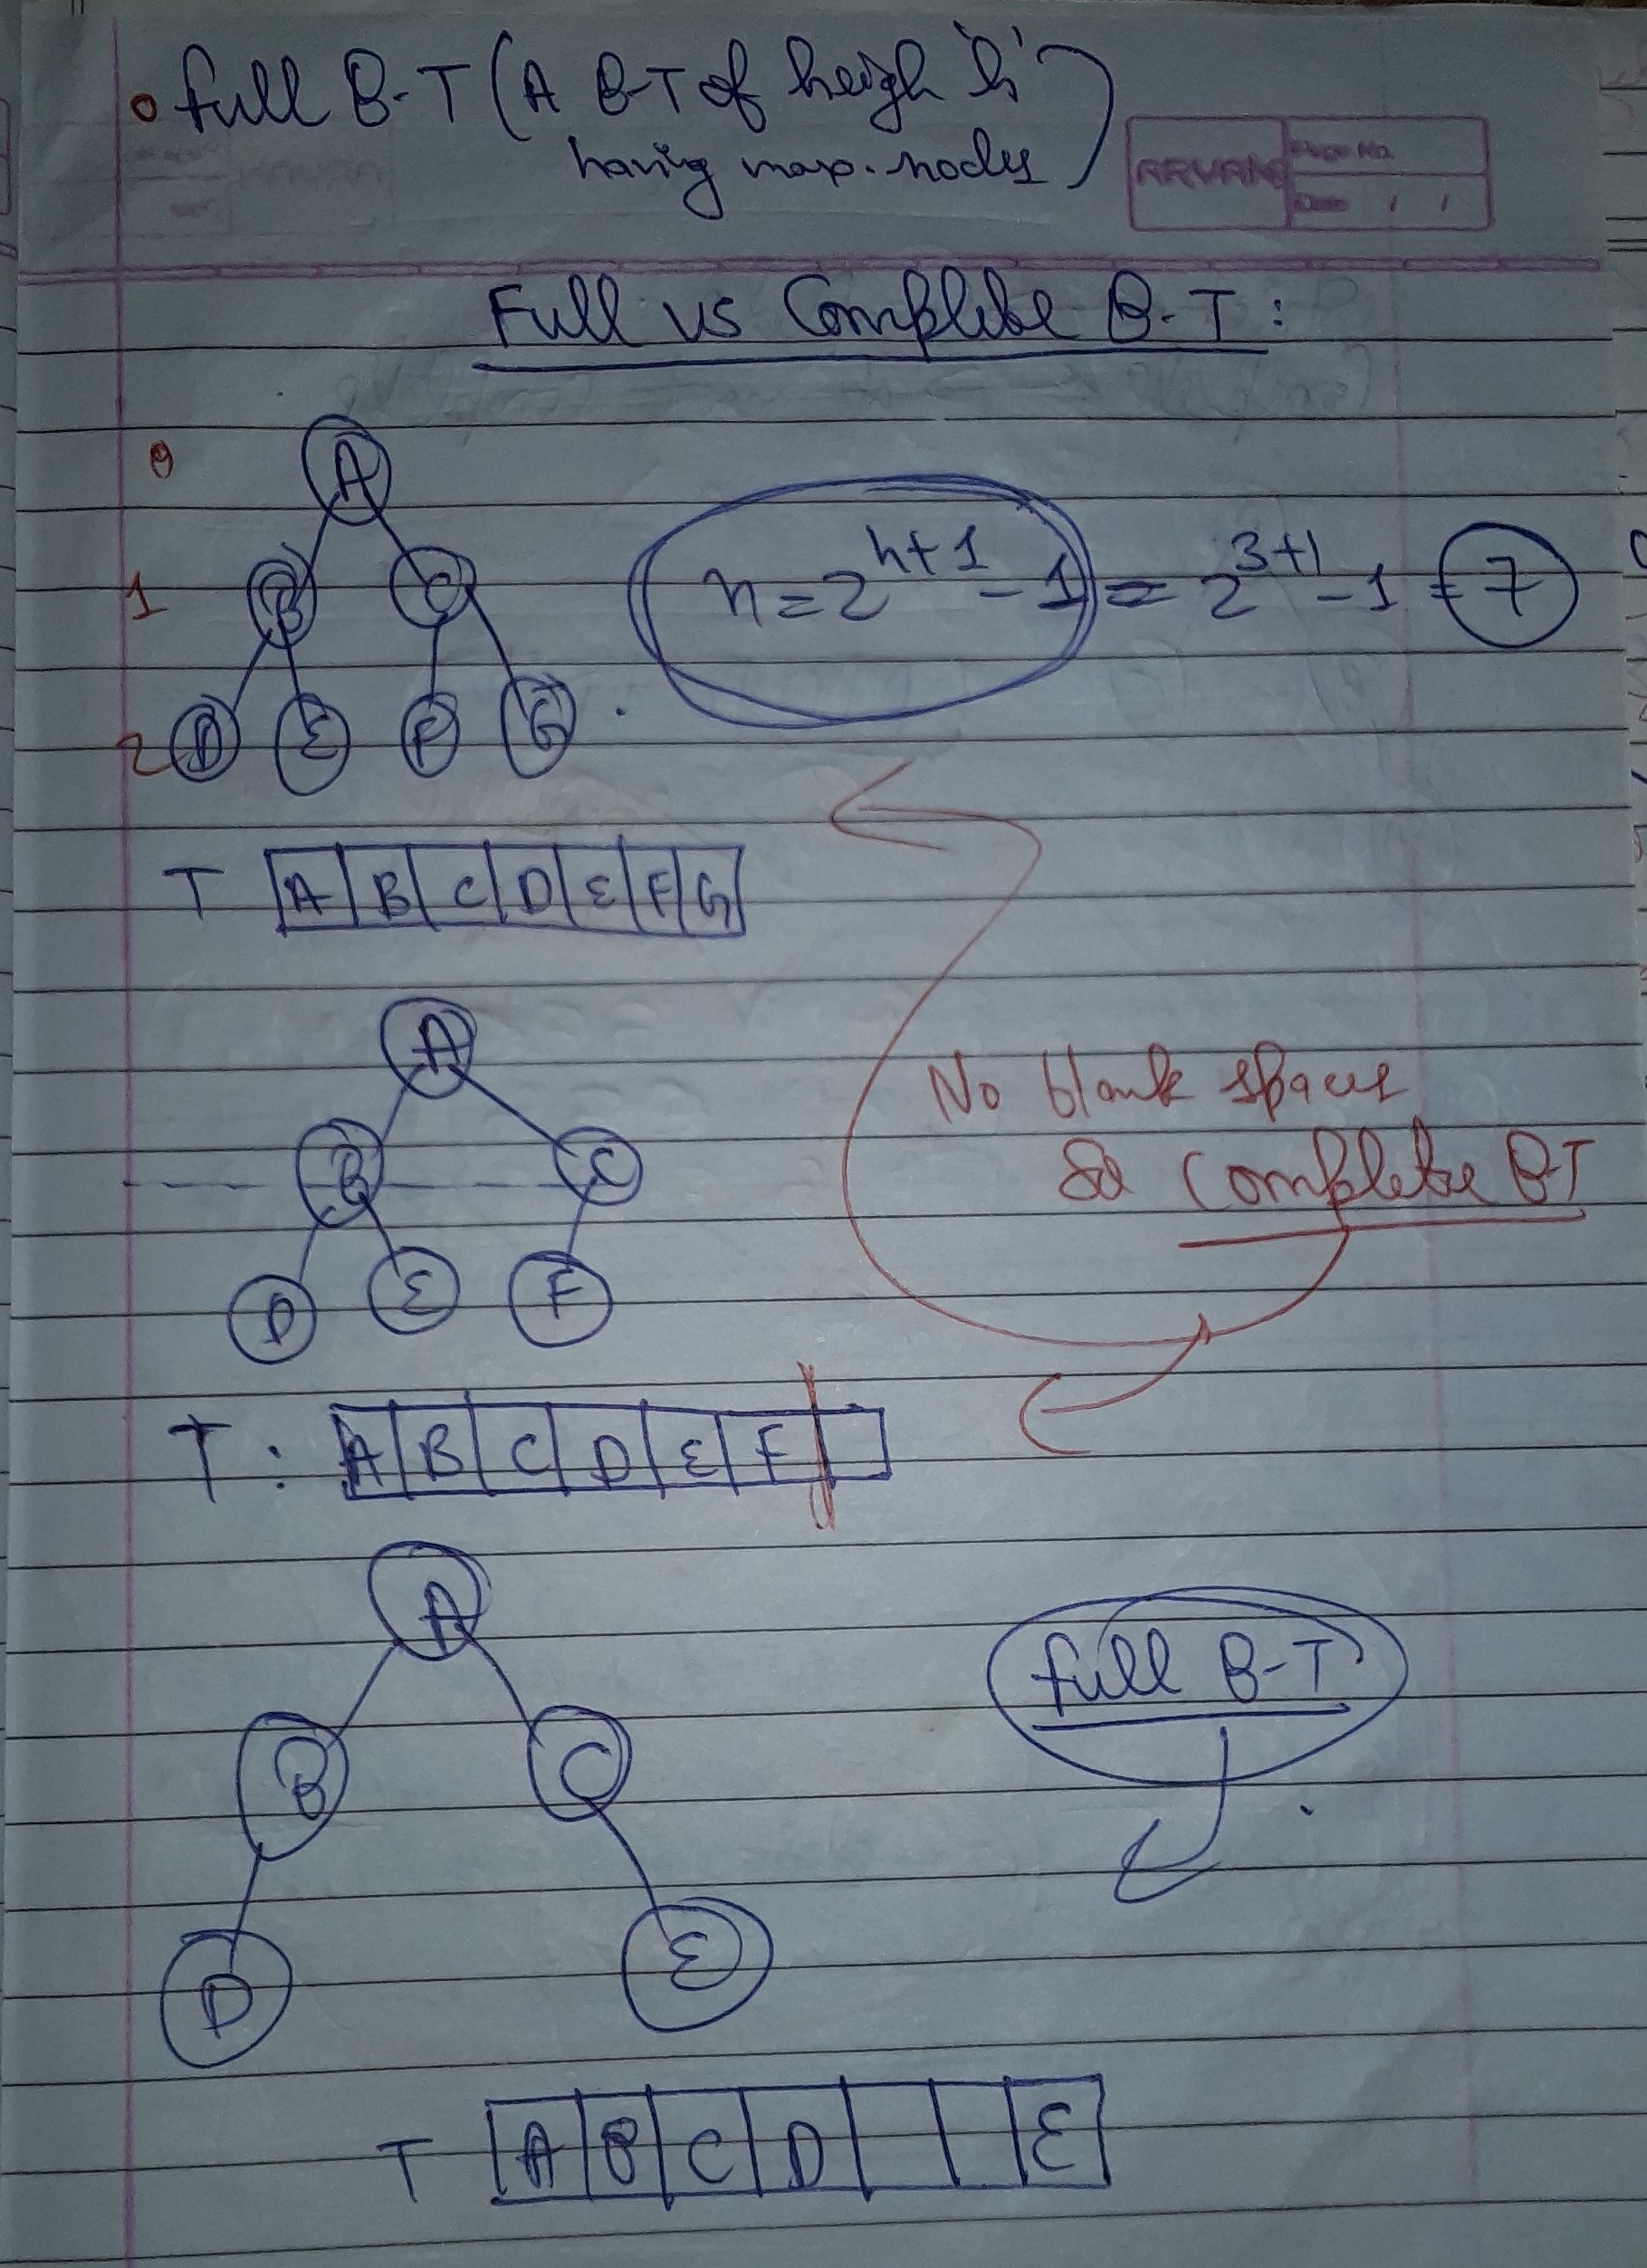 • full B-T (A B-T of heigh 'h'
having max. nodes)
ARVAN
Page No.
Date / /
Full vs Complete B-T:
0
A
1
B C
n=2^h+1 -1 = 2^3+1 -1 = 7
2
D E F G
T A B C D E F G
A
No blank spaces
B C
So Complete B-T
D E F
T: A B C D E F
A
full B-T
B C
D E
T A B C D E